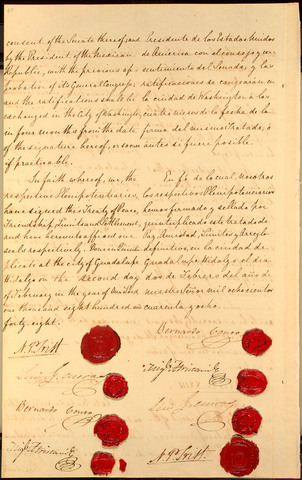 consent of the Senate thereof; and
by the President of the Mexican
Republic, with the previous ap-
probation of its General Congress;
and the ratifications shall be
exchanged in the City of Washington,
in four months from the date
of the signature hereof, or sooner
if practicable.
In faith whereof, we, the
respective Plenipotentiaries,
have signed this Treaty of Peace,
Friendship, Limits and Settlement,
and have hereunto affixed our
seals respectively. Done in Quintu-
plicate at the City of Guadalupe
Hidalgo on the second day
of February in the year of Our Lord
one thousand eight hundred and
forty eight.
N. P. Trist
Luis G. Cuevas
Bernardo Couto
Migl. Atristain
Presidente de los Estados Unidos
de America con el consejo y con-
sentimiento del Senado, y las
ratificaciones se cangearán en
la ciudad de Washington a los
cuatro meses de la fecha de la
firma del mismo Tratado, ó
antes si fuere posible.
En fe de lo cual, nosotros
los respectivos Plenipotenciarios
hemos firmado y sellado por
quintuplicado este tratado de
Paz, Amistad, Limites y Arreglo
definitivo, en la ciudad de
Guadalupe Hidalgo el dia
dos de Febrero del año de
nuestro Señor mil ochocientos
cuarenta y ocho.
Bernardo Couto
Migl. Atristain
Luis G. Cuevas
N. P. Trist